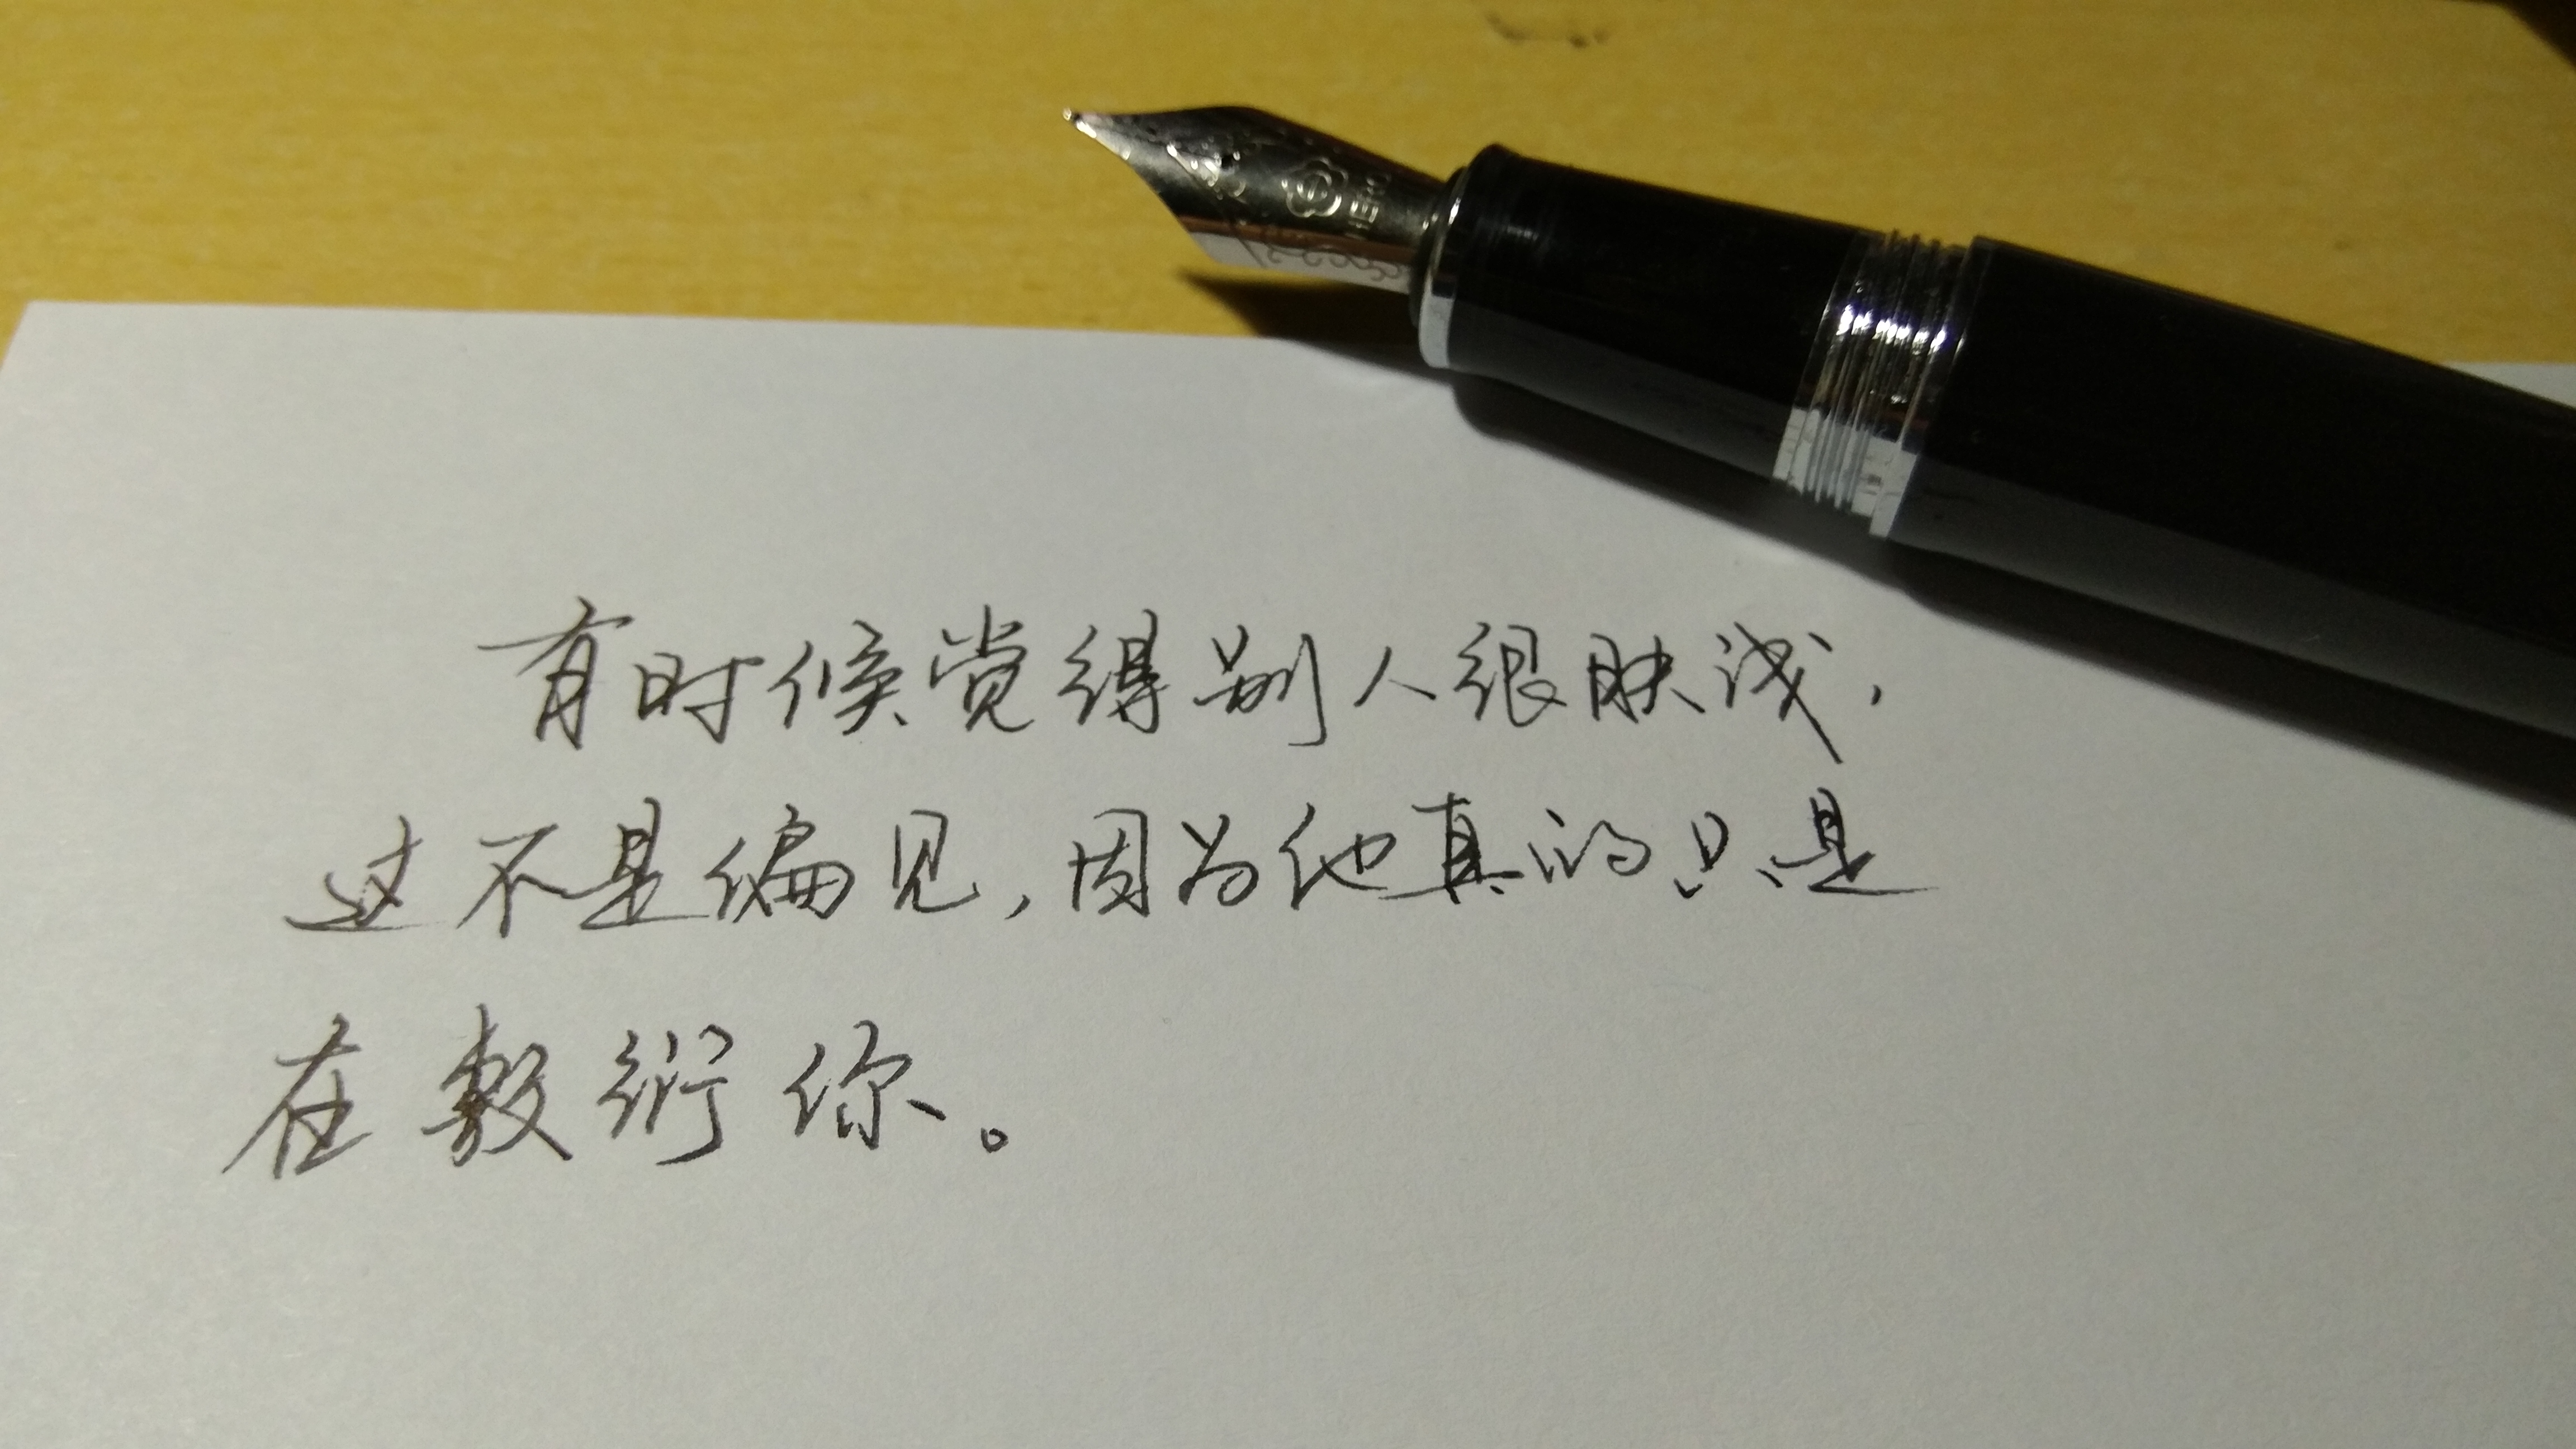 有时候觉得别人很肤浅，
这不是偏见，因为他真的只是
在敷衍你。